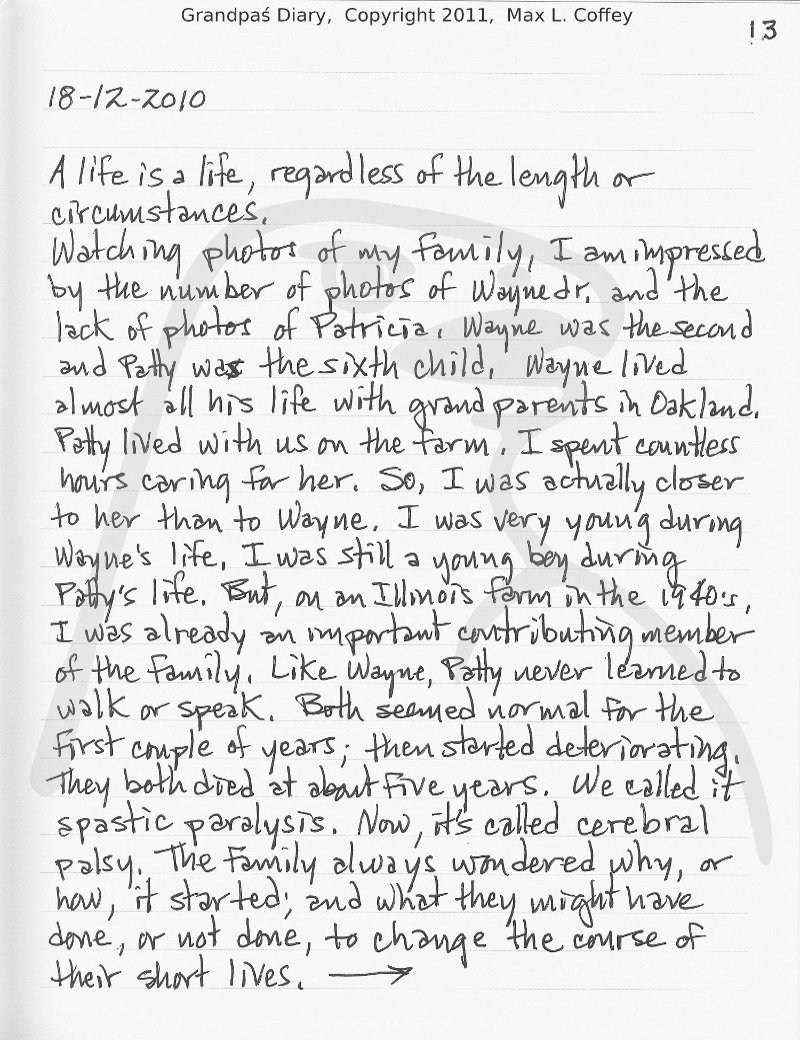 Grandpaś Diary, Copyright 2011, Max L. Coffey
13
18-12-2010
A life is a life, regardless of the length or
circumstances.
Watching photos of my family, I am impressed
by the number of photos of Wayne Jr. and the
lack of photos of Patricia. Wayne was the second
and Patty was the sixth child. Wayne lived
almost all his life with grandparents in Oakland.
Patty lived with us on the farm. I spent countless
hours caring for her. So, I was actually closer
to her than to Wayne. I was very young during
Wayne's life. I was still a young boy during
Patty's life. But, on an Illinois farm in the 1940's,
I was already an important contributing member
of the family. Like Wayne, Patty never learned to
walk or speak. Both seemed normal for the
first couple of years; then started deteriorating.
They both died at about five years. We called it
spastic paralysis. Now, it's called cerebral
palsy. The family always wondered why, or
how, it started; and what they might have
done, or not done, to change the course of
their short lives. →